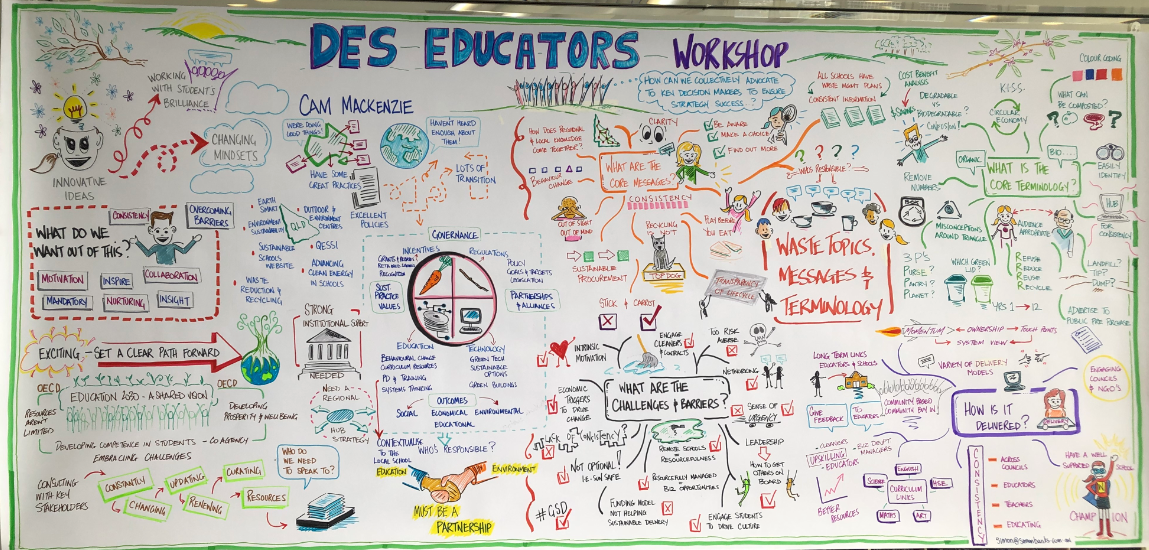 DES EDUCATORS WORKSHOP
WORKING
WITH STUDENTS
BRILLIANCE
INNOVATIVE
IDEAS
CHANGING
MINDSETS
CAM MACKENZIE
WE'RE DOING
GOOD THINGS
HAVE SOME
GREAT PRACTICES
HAVEN'T HEARD
ENOUGH ABOUT
THEM!
LOTS OF
TRANSITION
EXCELLENT
POLICIES
WHAT DO WE
WANT OUT OF THIS?
CONSISTENCY
OVERCOMING
BARRIERS
MOTIVATION
INSPIRE
COLLABORATION
MANDATORY
NURTURING
INSIGHT
EARTH
SMART
ENVIRONMENT
SUSTAINABILITY
SUSTAINABLE
SCHOOLS
WEBSITE
WASTE
REDUCTION &
RECYCLING
QLD
OUTDOOR &
ENVIRONMENT
CENTRES
QESSI
ADVANCING
CLEAN ENERGY
IN SCHOOLS
EXCITING - SET A CLEAR PATH FORWARD
STRONG
INSTITUTIONAL SUPPORT
NEEDED
NEED A
REGIONAL
HUB
STRATEGY
OECD
OECD
EDUCATION 2030 - A SHARED VISION
RESOURCES
AREN'T
LIMITED
DEVELOPING
PROSPERITY & WELL BEING
DEVELOPING COMPETENCE IN STUDENTS - CO AGENCY
EMBRACING CHALLENGES
CONSULTING
WITH KEY
STAKEHOLDERS
CONSTANTLY
CHANGING
UPDATING
RENEWING
CURATING
RESOURCES
WHO DO
WE NEED
TO SPEAK TO?
GOVERNANCE
INCENTIVES
REGULATIONS
RECOGNITION
POLICY
GOALS & TARGETS
LEGISLATION
SUST
PRACTICE
VALUES
PARTNERSHIPS
& ALLIANCES
EDUCATION
BEHAVIOURAL CHANGE
CURRICULUM RESOURCES
PD & TRAINING
SYSTEMS THINKING
TECHNOLOGY
GREEN TECH
SUSTAINABLE
OPTIONS
GREEN BUILDING
OUTCOMES
SOCIAL
ECONOMICAL
ENVIRONMENTAL
EDUCATIONAL
CONTEXTUALISE
TO THE
LOCAL SCHOOL
WHO'S RESPONSIBLE?
EDUCATION
ENVIRONMENT
MUST BE A
PARTNERSHIP
HOW CAN WE COLLECTIVELY ADVOCATE
TO KEY DECISION MAKERS TO ENSURE
STRATEGIC SUCCESS?
HOW DOES REGIONAL
& LOCAL KNOWLEDGE
COME TOGETHER?
BEHAVIOUR
CHANGE
CLARITY
BE AWARE
MAKE A CHOICE
FIND OUT MORE
WHAT ARE THE
CORE MESSAGES?
CONSISTENCY
OUT OF SIGHT
OUT OF MIND
SUSTAINABLE
PROCUREMENT
RECYCLING
IS NOT
TOP DOG
TRANSPARENCY
OF THE CYCLE
ALL SCHOOLS HAVE
WASTE MGMT PLANS
CONSISTENT INFORMATION
WASTE TOPICS,
MESSAGES &
TERMINOLOGY
STICK & CARROT
INTRINSIC
MOTIVATION
ENGAGE
CLEANERS
CONTRACTS
TOO RISK
AVERSE
NETWORKING
WHAT ARE THE
CHALLENGES & BARRIERS?
ECONOMIC
TRIGGERS
TO DRIVE
CHANGE
SENSE OF
URGENCY
LACK OF CONSISTENCY?
NOT OPTIONAL!
I.E. SUN SAFE
#GSD
REMOTE SCHOOLS
RESOURCEFULNESS
RESOURCEFULLY MANAGED
BIZ OPPORTUNITIES
LEADERSHIP
HOW TO GET
OTHERS ON
BOARD
FUNDING MODEL
NOT HELPING
SUSTAINABLE DELIVERY
ENGAGE STUDENTS
TO DRIVE CULTURE
COST BENEFIT
ANALYSIS
DEGRADABLE
VS
BIODEGRADABLE?
CONFUSING!
K.I.S.S.
CIRCULAR
ECONOMY
COLOUR CODING
WHAT CAN
BE COMPOSTED?
ORGANIC
BIO
WHAT IS THE
CORE TERMINOLOGY?
EASILY
IDENTIFY
REMOVE
NUMBERS
MISCONCEPTIONS
AROUND TRIANGLE
AUDIENCE
APPROPRIATE
HUB
FOR
CONSISTENCY
3 P's
PURSE?
PANTRY?
PLANET?
WHICH GREEN
LID?
REFUSE
REDUCE
REUSE
RECYCLE
YRS 1 → 12
LANDFILL?
TIP?
DUMP?
ADVERTISE TO
PUBLIC PRE PURCHASE
MOMENTUM
OWNERSHIP
TOUCH POINTS
SYSTEM VIEW
VARIETY OF DELIVERY
MODELS
LONG TERM LINKS
EDUCATORS & SCHOOLS
GIVE
FEEDBACK
TO
EDUCATORS
COMMUNITY BASED
COMMUNITY BUY IN
ENGAGING
COUNCILS
& NGO'S
HOW IS IT
DELIVERED?
CLEANERS
BIZ DEV'T
MANAGERS
UPSKILLING
EDUCATORS
BETTER
RESOURCES
ENGLISH
SCIENCE
HSE.
CURRICULUM
LINKS
MATHS
ART
CONSISTENCY
ACROSS
COUNCILS
EDUCATORS
TEACHERS
EDUCATING
HAVE A WELL
SUPPORTED
SCHOOL
CHAMPION